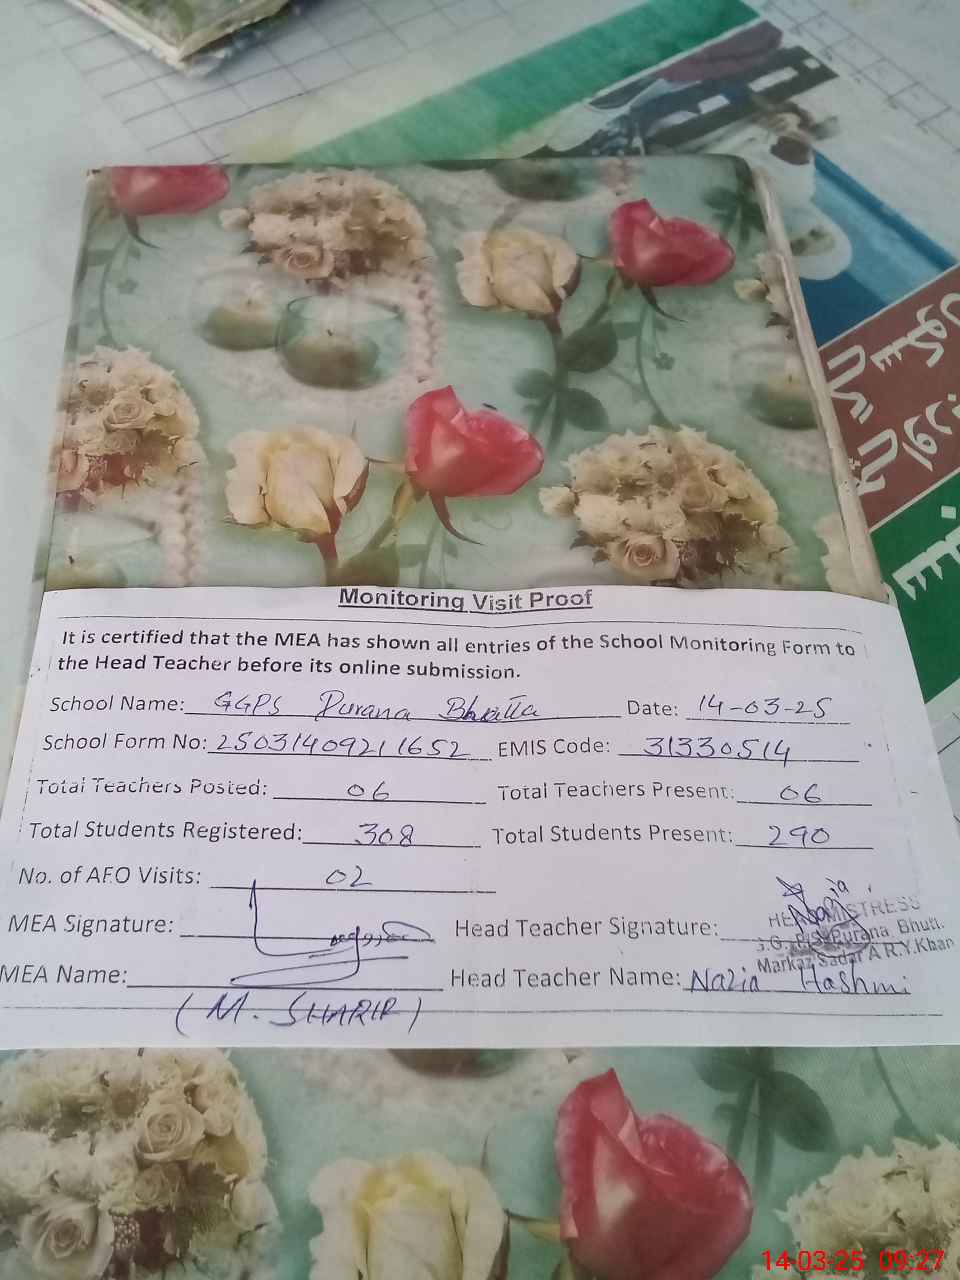 Monitoring Visit Proof
It is certified that the MEA has shown all entries of the School Monitoring Form to
the Head Teacher before its online submission.
School Name: GGPS Purana Bhutta Date: 14-03-25
School Form No: 25031409211652 EMIS Code: 31330514
Total Teachers Posted: 06 Total Teachers Present: 06
Total Students Registered: 308 Total Students Present: 290
No. of AEO Visits: 02
MEA Signature: Head Teacher Signature:
HEADMISTRESS
Purana, Bhutt.
Markaz Sadar A R.Y.Khan
MEA Name: Head Teacher Name: Nazia Hashmi
(M. SHARIF)
سکول
اور
14-03-25 09:27